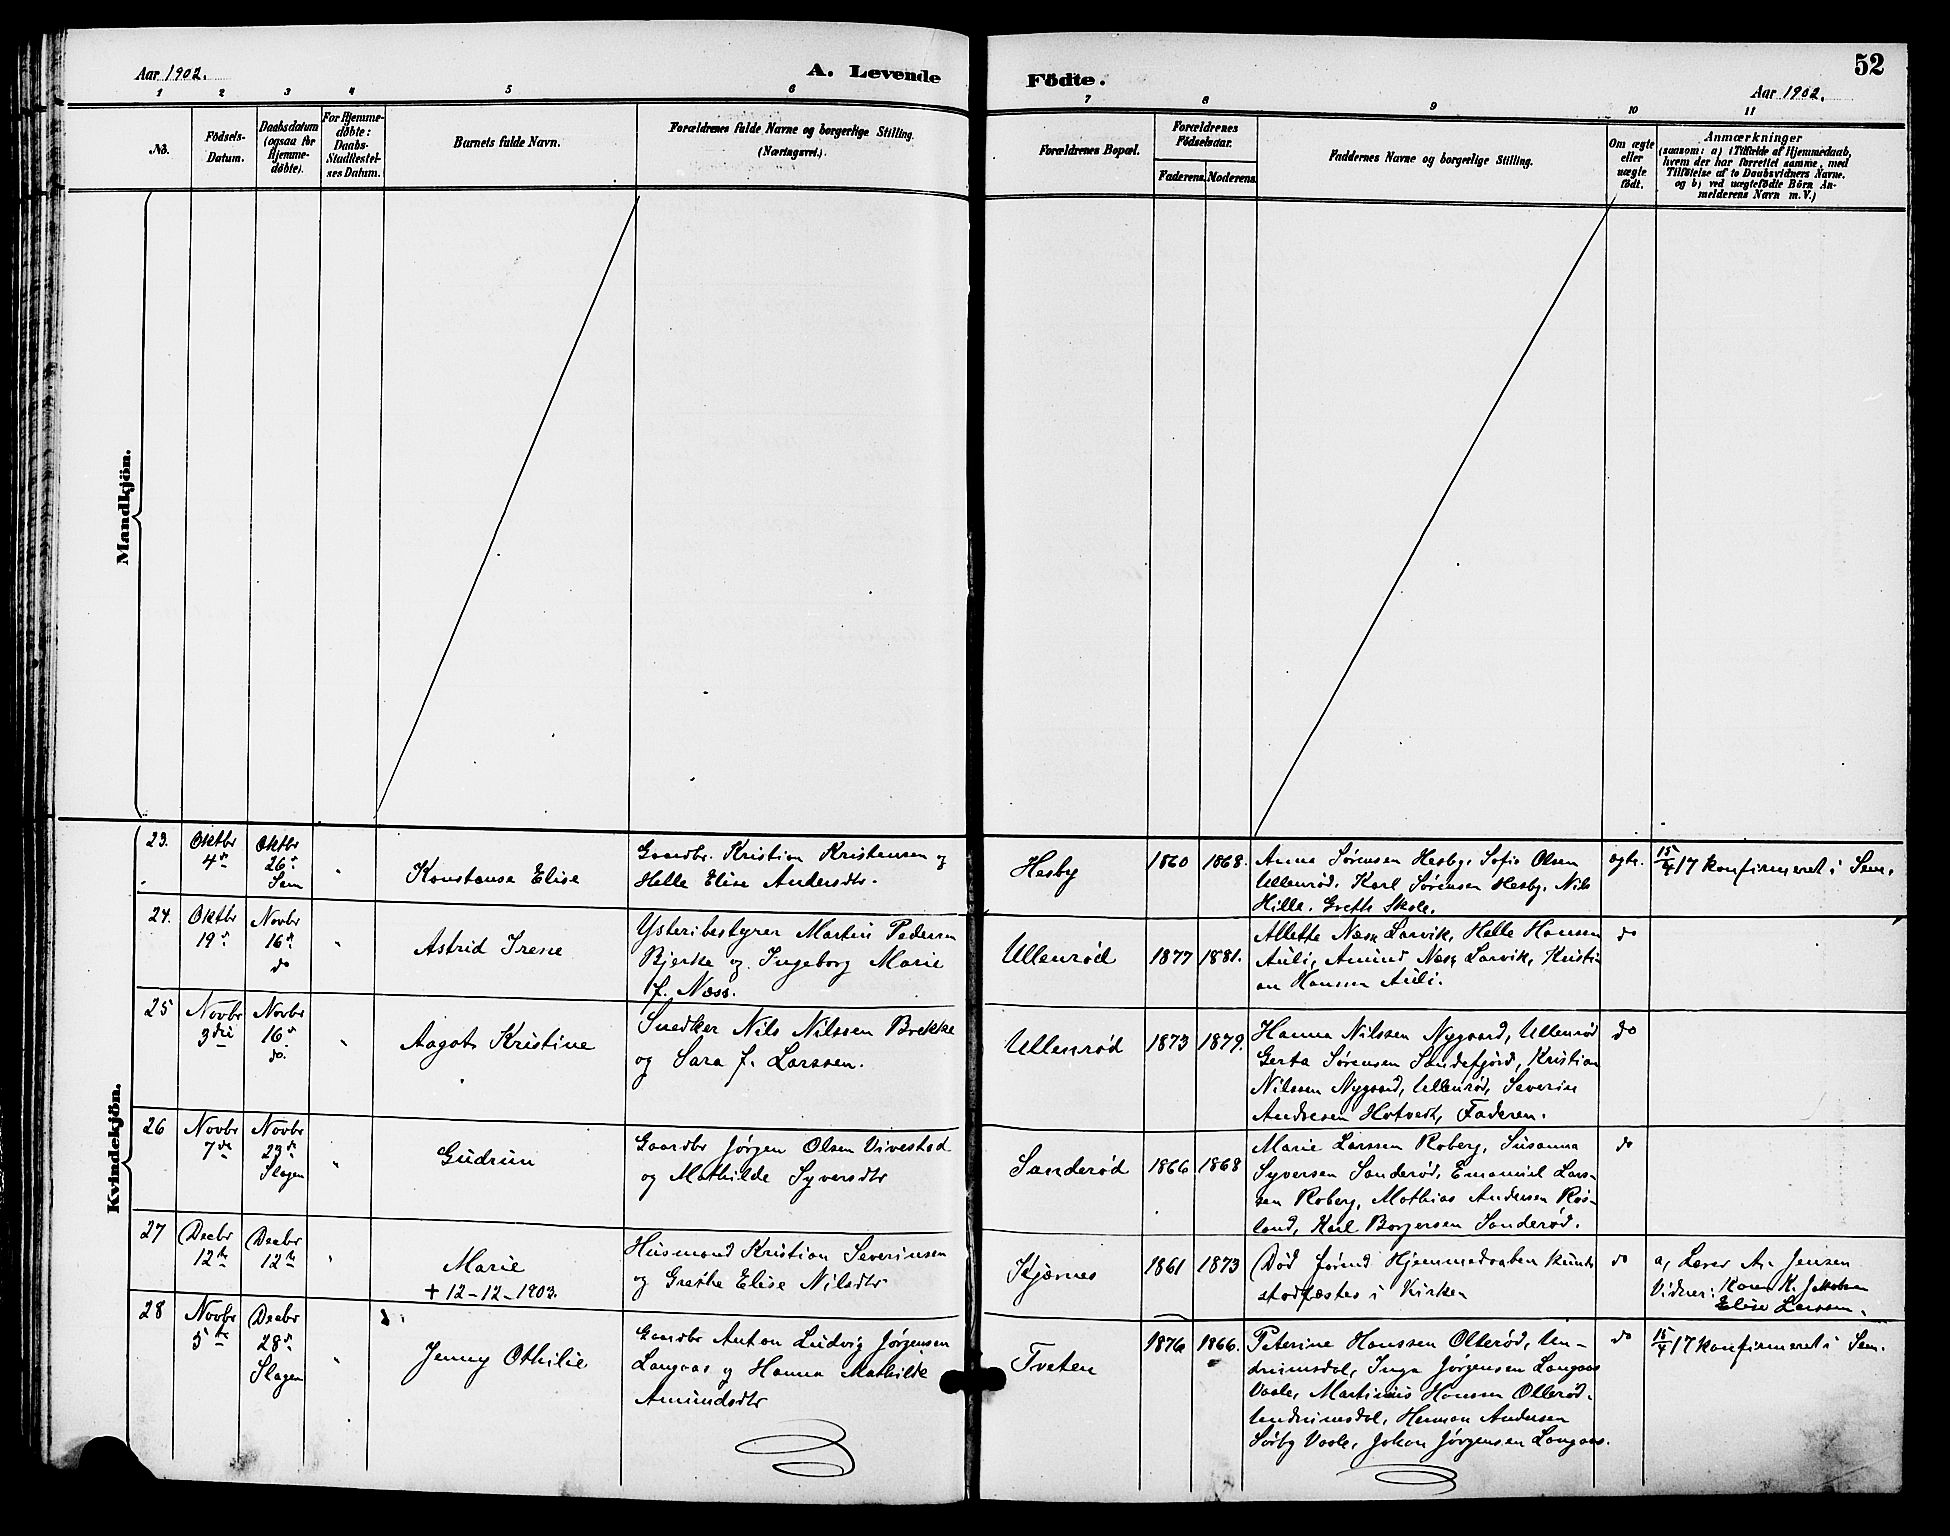 52
Aar 1902.
A. Levende
Födte.
Aar 1902.
1 2 3 4 5 6 7 8 9 10 11
No.
Födsels-
Datum.
Daabsdatum
(ogsaa for
Hjemme-
døbte).
For Hjemme-
døbte:
Daabs-
Stadfæstel-
ses Datum.
Barnets fulde Navn.
Forældrenes fulde Navne og borgerlige Stilling.
(Næringsvei.)
Forældrenes Bopæl.
Forældrenes
Födselsaar.
Faderens. Moderens.
Faddernes Navne og borgerlige Stilling.
Om ægte
eller
uægte
födt.
Anmærkninger
(saasom: a) i Tilfælde af Hjemmedaab,
hvem der har forrettet samme, med
Tilföielse af to Daabsvidners Navne,
og b) ved uægtefödte Börn An-
melderens Navn m. V.)
Mandkjön.
Kvindekjön.
23.
Oktbr
4de
Oktbr
26de
Sem
"
Konstanse Elise
Gaardbr. Kristian Kristensen og
Helle Elise Andersdtr.
Hesby
1860
1868.
Anna Sørensen Hesby, Sofie Olsen
Ullenrød. Karl Sørensen Hesby. Nils
Hille. Greth Skole.
egte.
15/4 17 konfirmeret i Sem.
24.
Oktbr
19de
Novbr
16de
do
"
Astrid Irene
Ysteribestyrer Martin Pedersen
Bjerke og Ingeborg Marie
f. Næss.
Ullenrød
1877
1881.
Allette Næss Larvik, Helle Hansen
Auli, Amund Næss Larvik, Kristi
an Hansen Auli.
do
25
Novbr
3die
Novbr
16de
do.
"
Aagot Kristine
Snedker Nils Nilssen Brekke
og Sara f. Larssen.
Ullenrød
1873
1879.
Hanna Nilssen Nygaard, Ullenrød
Gerta Sørensen Sandefjord, Kristian
Nilssen Nygaard, Ullenrød, Severin
Andresen Hotvedt, Faderen.
do
26
Novbr
7de
Novbr
23de
Slagen
"
Gudrun
Gaardbr Jørgen Olsen Vivestad
og Mathilde Syversdtr
Sanderød
1866
1868
Marie Larssen Roberg, Susanna
Syversen Sanderød, Emanuel Lars-
sen Roberg, Mathias Andersen Ros-
land, Karl Borgersen Sanderød.
do
27
Decbr
12te
Decbr
12te
"
Marie
+ 12-12-1903.
Husmand Kristian Severinsen
og Grethe Elise Nilsdtr
Kjærnes
1861
1873
Død førend Hjemmedaaben kunde
stadfæstes i Kirken
do
a, Lærer A. Jensen
Vidner: K. Jakobsen
Elise Larssen.
28
Novbr
5te
Decbr
28de
Slagen
"
Jenny Othilie
Gaardbr Anton Ludvig Jørgensen
Langaas og Hanna Mathilde
Amundsdtr
Tveten
1876
1866.
Peterine Hanssen Olterød, Un-
drumsdal, Inga Jørgensen Langaas
Vaale, Martinius Hansen Ollerød.
Undrumsdal, Herman Andersen
Sørby Vaale, Johan Jørgensen Langaas.
do
15/4 17 konfirmeret i Sem.